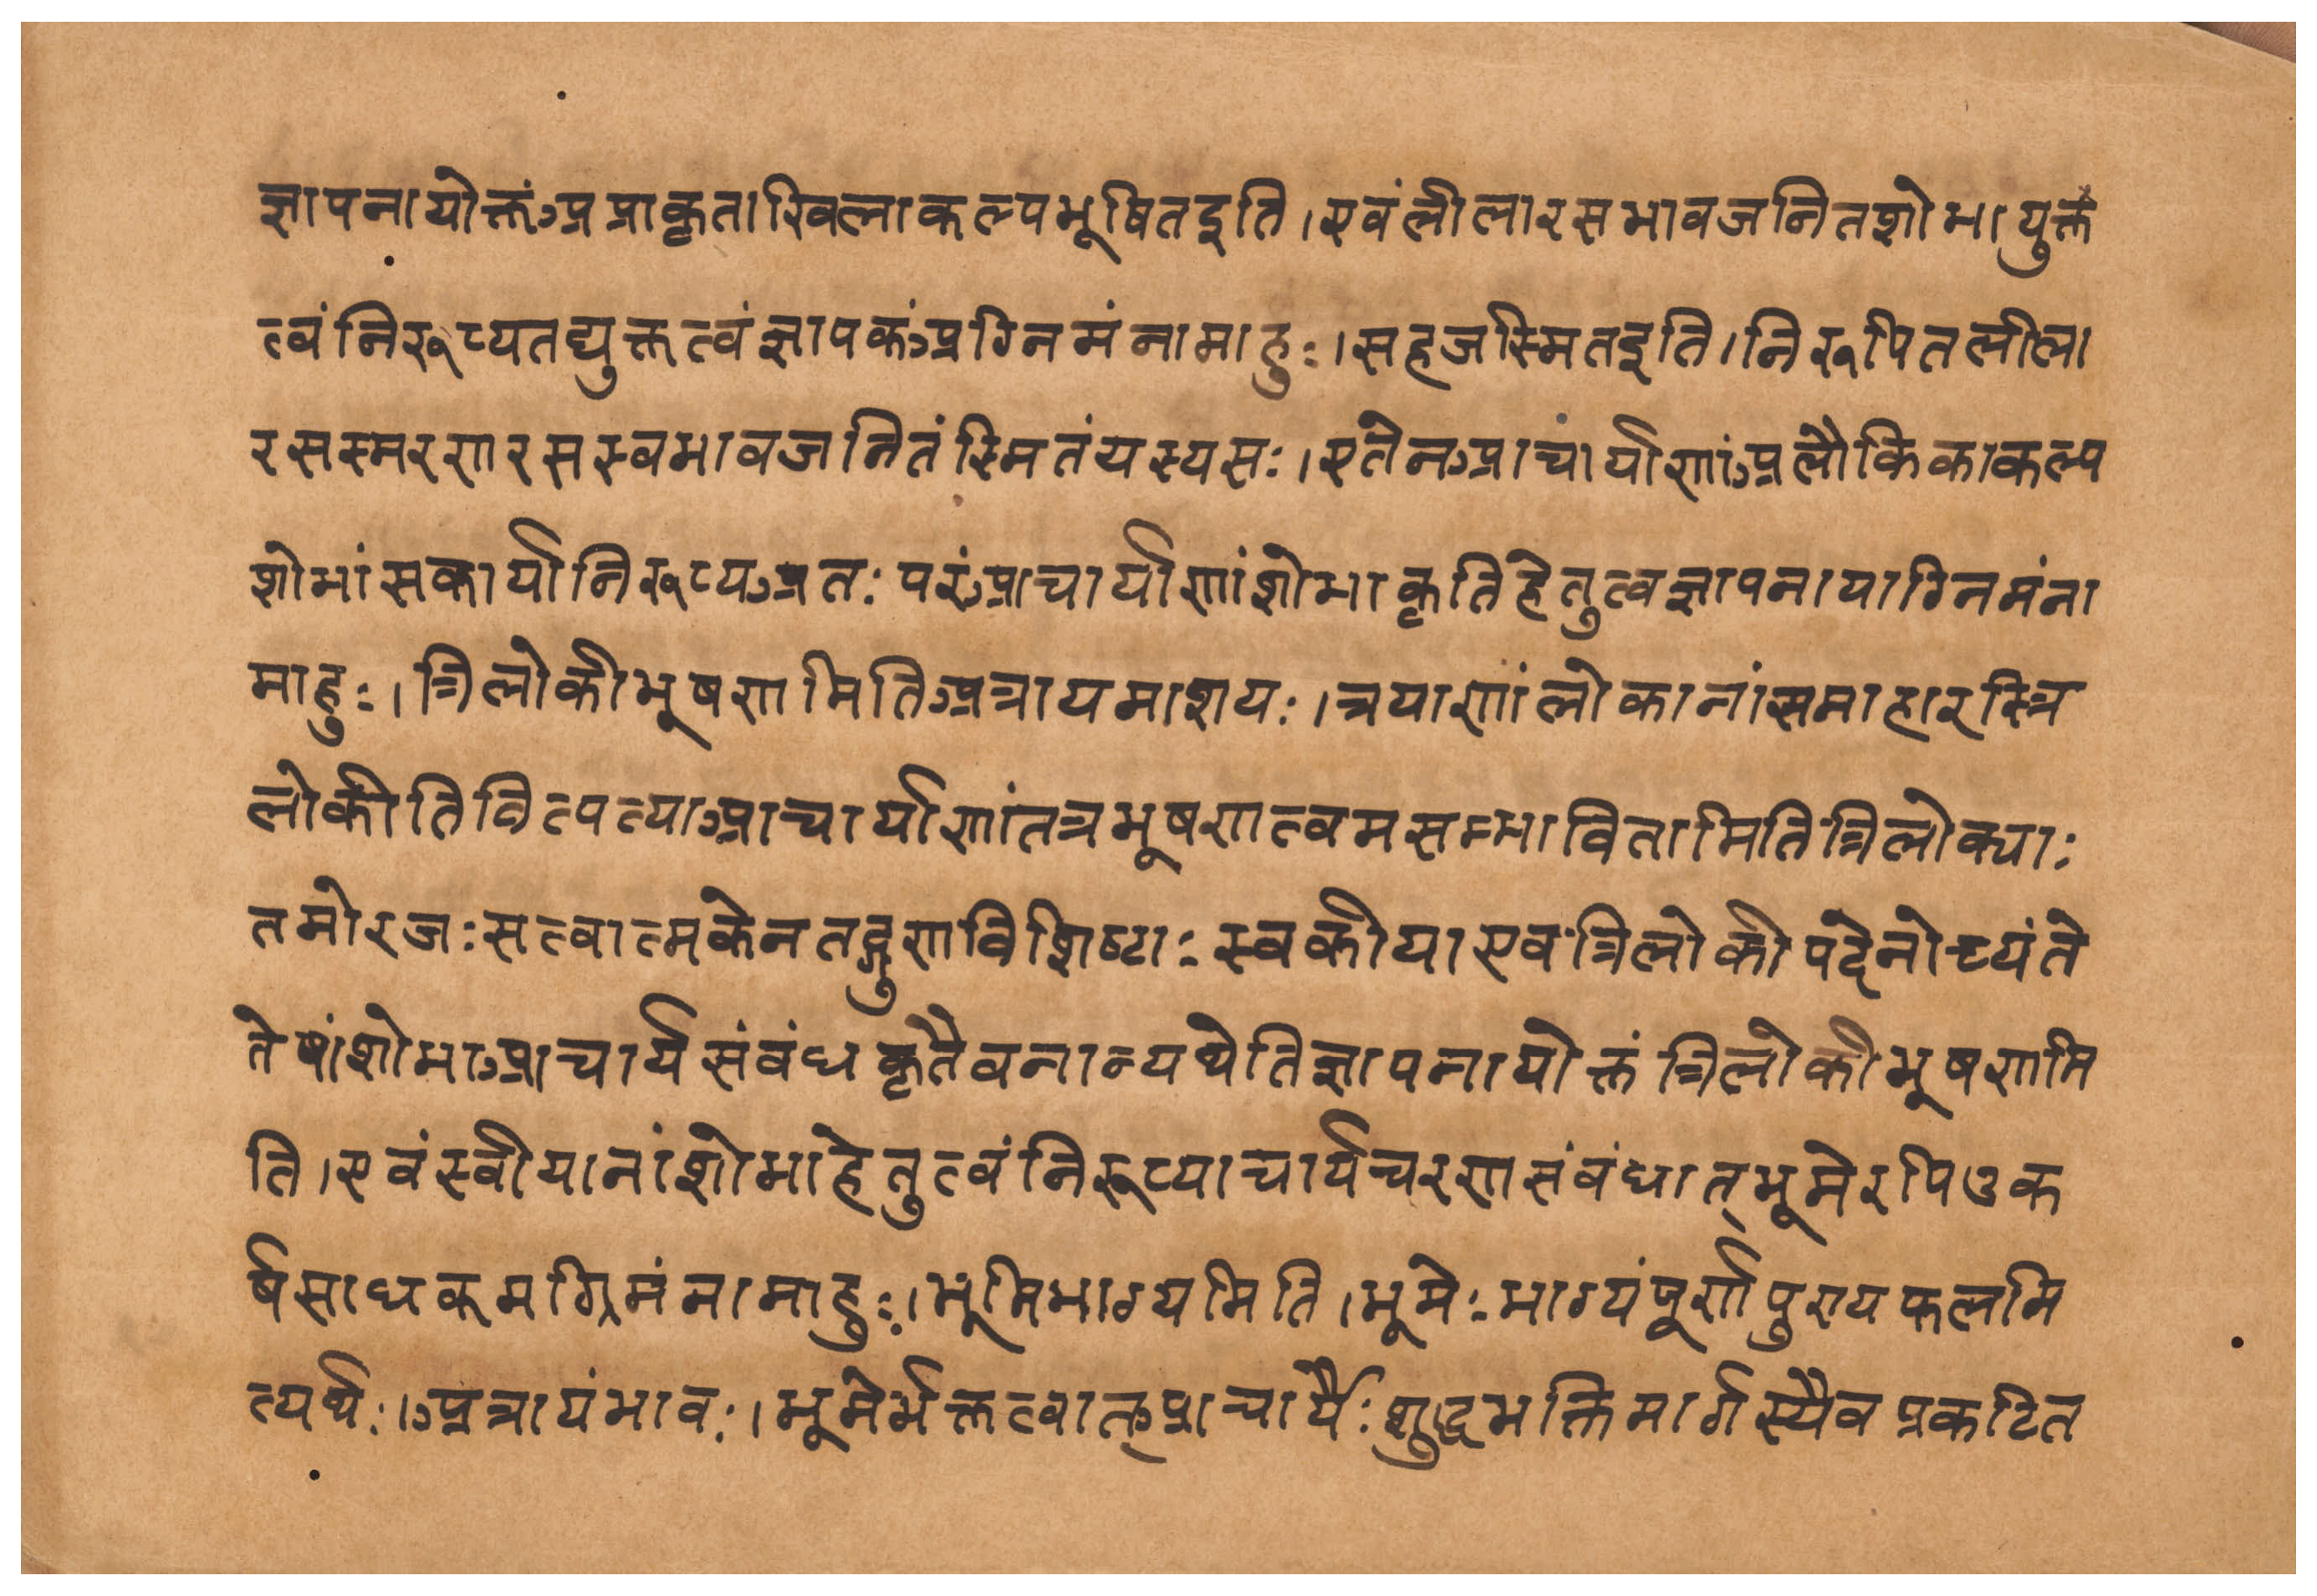 ज्ञापनायोक्तंअप्राकृताखिलाकल्पभूषितइति।एवंलीलारसभावजनितशोभायुक्त
त्वंनिरूप्यतद्युक्तत्वंज्ञापकंअग्निमंनामाहुः।सहजस्मितइति।निरूपितलीला
रसस्मरणरसस्वभावजनितंस्मितंयस्यसः।एतेनआचार्याणांअलौकिकाकल्प
शोभांसकार्यांनिरूप्यअतःपरंआचार्याणांशोभाकृतिहेतुत्वज्ञापनायाग्निमंना
माहुः।त्रिलोकीभूषणमितिअत्रायमाशयः।त्रयाणांलोकानांसमाहारस्त्रि
लोकीतिवित्पत्त्याआचार्याणांतत्रभूषणत्वमसम्भावितामितित्रिलोक्याः
तमोरजःसत्वात्मकेनतद्गुणविशिष्टाःस्वकीयाएवंत्रिलोकीपदेनोच्यंते
तेषांशोभाआचार्यसंबंधकृतैवनान्यथेतिज्ञापनायोक्तंत्रिलोकीभूषणमि
ति।एवंस्वीयानांशोभाहेतुत्वंनिरूप्याचार्यचरणसंबंधात्भूमेरपिउक
र्षसाधकमग्रिमंनामाहुः।भूमिभाग्यमिति।भूमेःभाग्यंपूर्णपुण्यफलमि
त्यर्थः।अत्रायंभावः।भूमेर्भक्तत्वात्आचार्यैःशुद्धभक्तिमार्गस्यैवप्रकटित